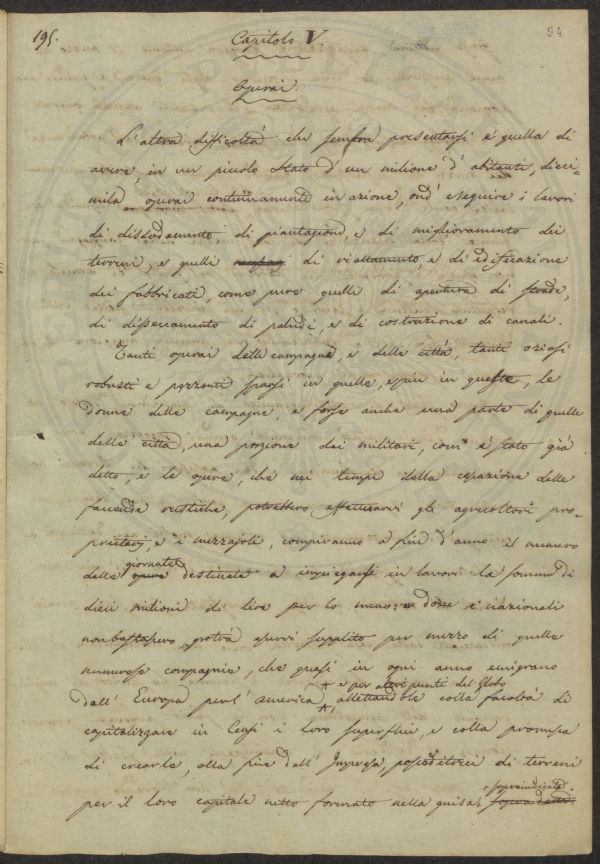 195.
94
Capitolo V.
Operai.
L'altra difficoltà che sembra presentarsi è quella di
avere, in un piccolo Stato d'un milione d'abitanti, dieci-
mila operai continuamente in azione, ond'eseguire i lavori
di dissodamento, di piantagione, e di miglioramento dei
terreni, e quelli di riattamento, e di edificazione
dei fabbricati, come pure quelli di apertura di strade,
di disseccamento di paludi, e di costruzione di canali.
Tanti operai delle campagne, e delle città, tanti oziosi
robusti e pezzenti sparsi in quelle, e più in queste, le
donne delle campagne, e forse anche una parte di quelle
delle città, una porzione dei militari, com'è stato già
detto, e le opere, che nei tempi della cessazione delle
faccende rustiche, potrebbero effettuarvi gli agricoltori pro-
prietarj, e i mezzajoli, compiranno a fine d'anno il numero
giornate
delle opere destinate a impiegarsi in lavori la somma di
dieci milioni di lire per lo meno: e dove i nazionali
non bastassero, potrà esservi supplito per mezzo di quelle
numerose compagnie, che quasi in ogni anno emigrano
e per altri punti del Globo
dall'Europa per l'America, allettandole colla facoltà di
capitalizzare in Censi i loro superflui, e colla promessa
di crearle, alla fine dell'Impresa, posseditrici di terreni
sopraindicata.
per il loro capitale netto formato nella guisa, sopra detta.